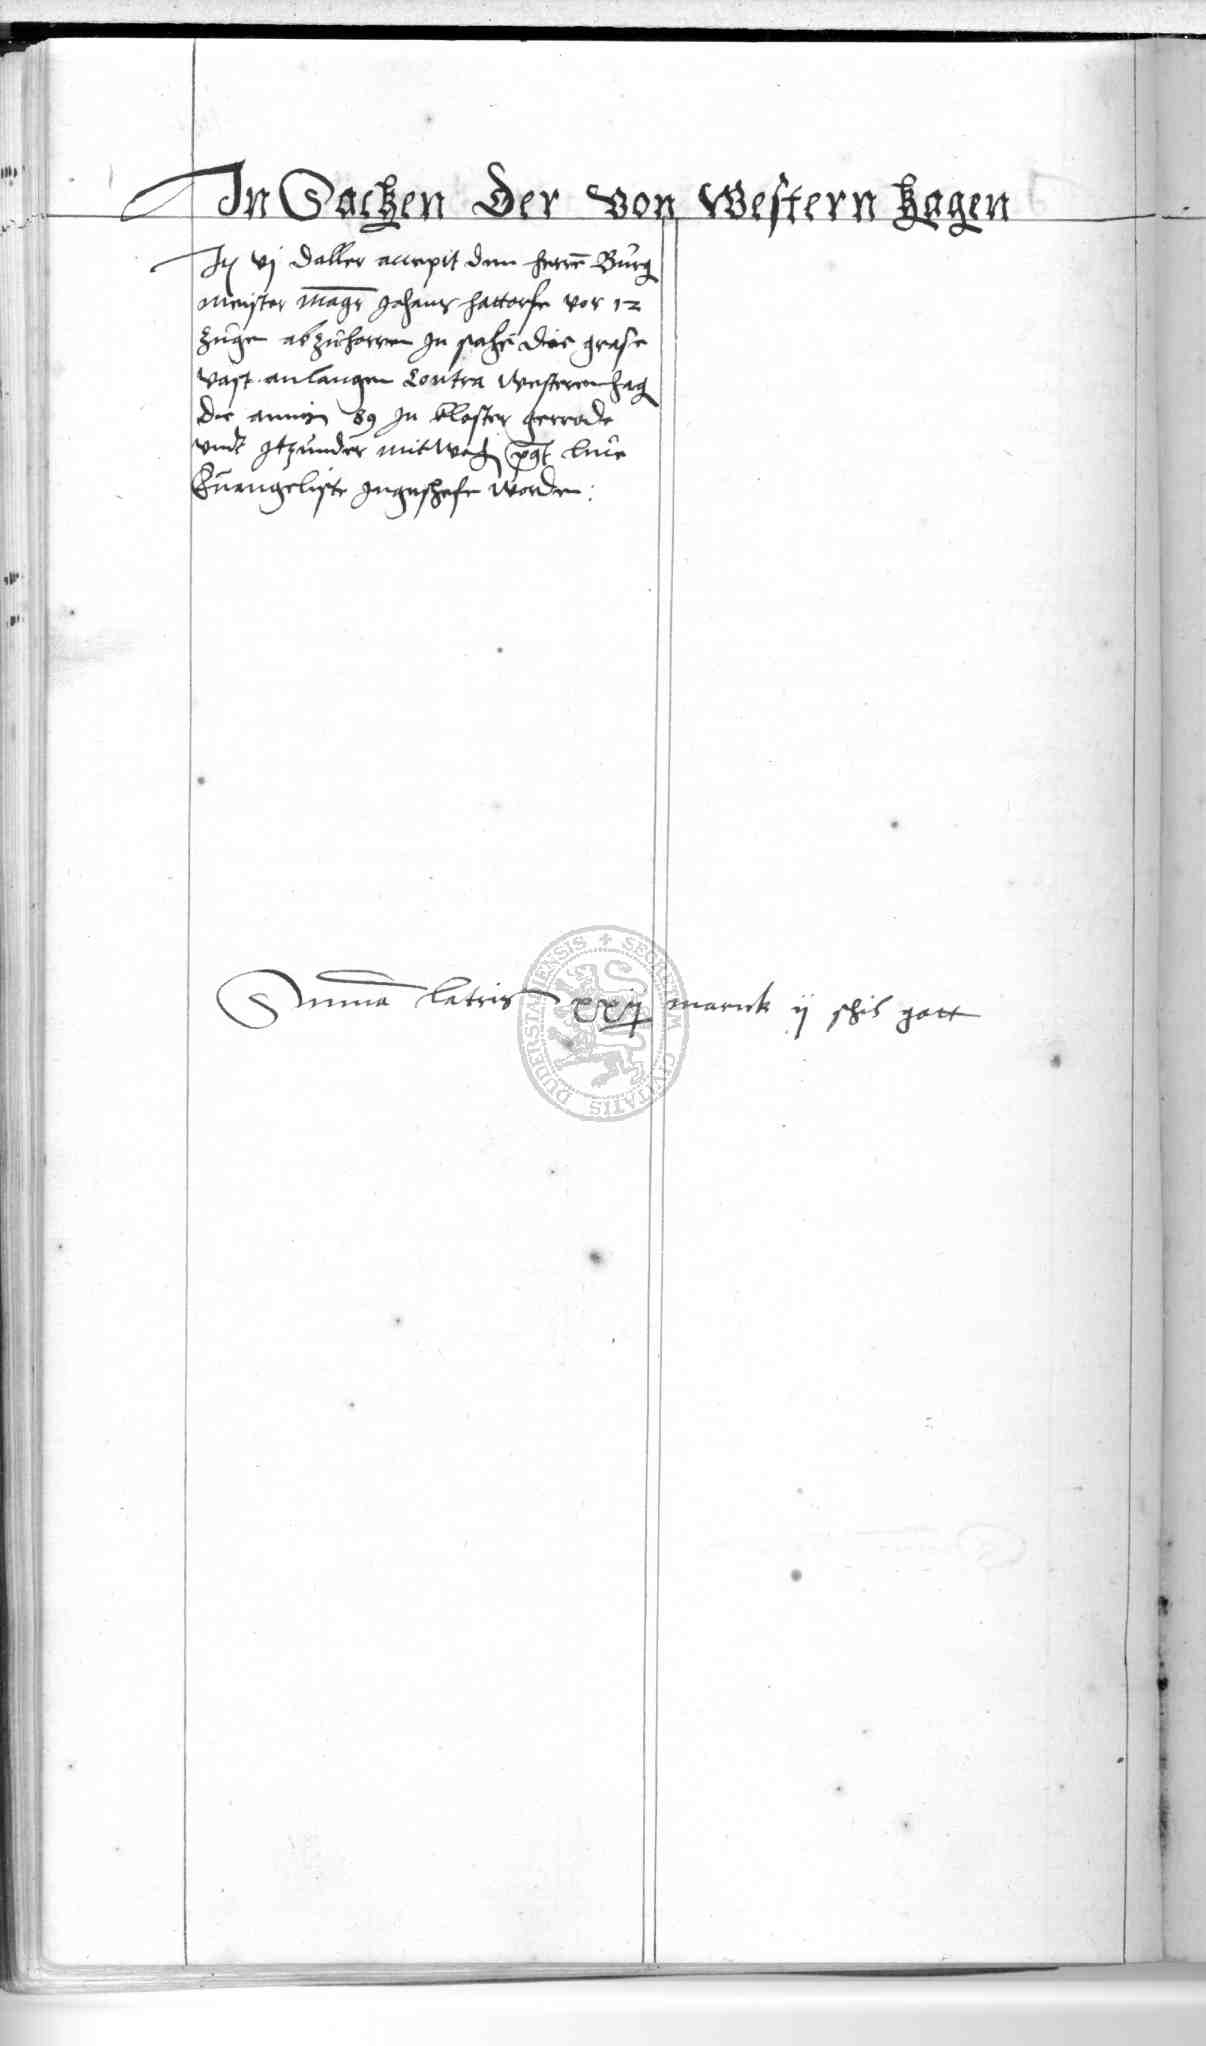 In Sachen der von Western hagen
It vj daller accepit dem herrn Burg
meister Magr Johans hattorfe vor 12
zugen abzuhorren in sachen die grase
vast anlangen Contra Westerenhag
die anno 89 in kloster gerrode
vndt itzunder mitwoch post luce
Euangeliste jngeschefe worden:
Summa latris xxij marck ij schil gott
DUDERSTADIENSIS SECRETUM CIVITATIS